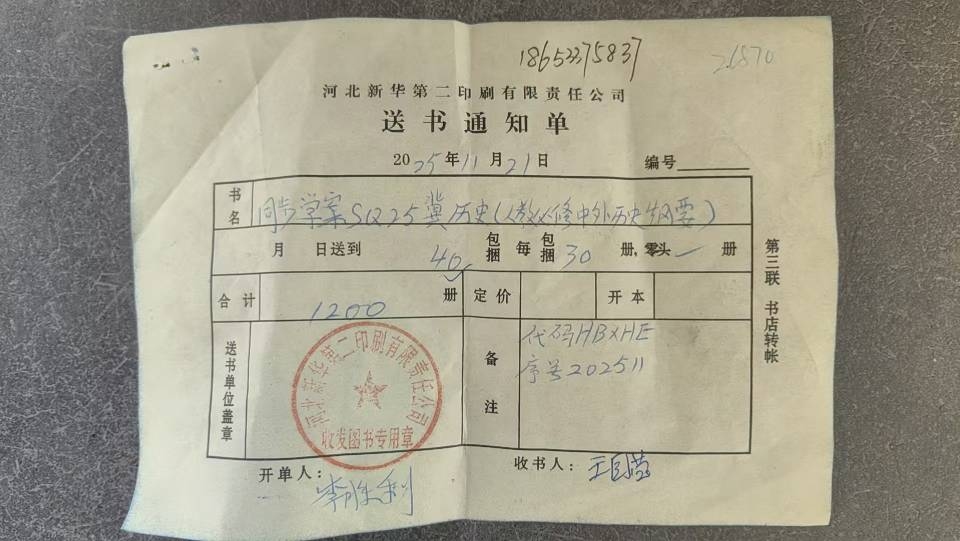 18653375837
26870
河北新华第二印刷有限责任公司
送书通知单
2025年11月21日 编号
书名 同步学案SQ25冀历史(人教必修中外历史纲要)
月 日送到 40 包捆 每 包捆 30 册,零头 一 册
合计 1200 册 定价 开本
送书单位盖章
河北新华第二印刷有限责任公司
收发图书专用章
备注 代码HBXHE
序号202511
开单人: 李胜利
收书人: 王
第三联 书店转帐